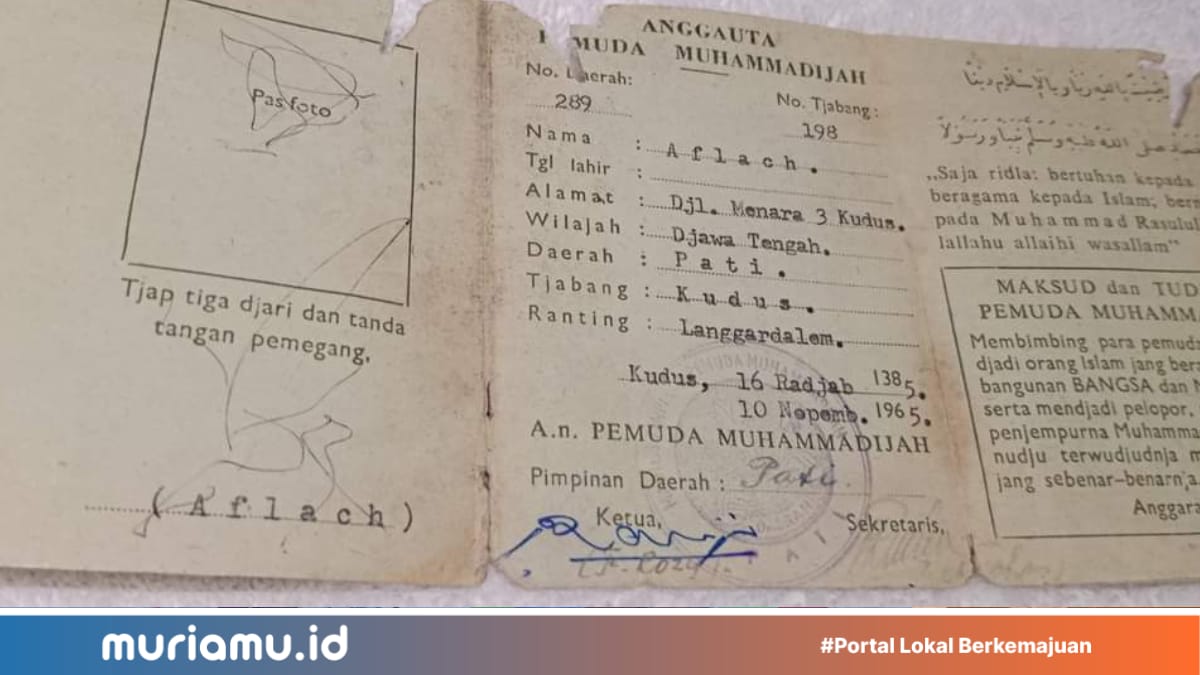 Pasfoto
Tjap tiga djari dan tanda
tangan pemegang,
( Aflach )
ANGGAUTA
MUDA MUHAMMADIJAH
No. Daerah:
289
No. Tjabang:
198
Nama : Aflach.
Tgl lahir :
Alamat : Djl. Menara 3 Kudus.
Wilajah : Djawa Tengah.
Daerah : Pati.
Tjabang : Kudus.
Ranting : Langgardalem.
Kudus, 16 Radjab 1385.
10 Nopemb. 1965.
A.n. PEMUDA MUHAMMADIJAH
Pimpinan Daerah : Pati.
Ketua,
Sekretaris,
رضيت بالله ربا وبالإسلام دينا
صلى الله عليه وسلم نبيا ورسولا
„Saja ridla: bertuhan kepada
beragama kepada Islam; ber
pada Muhammad Rasulul
lallahu allaihi wasallam”
MAKSUD dan TUD
PEMUDA MUHAMMA
Membimbing para pemuda
djadi orang Islam jang ber
bangunan BANGSA dan
serta mendjadi pelopor,
penjempurna Muhamma
nudju terwudjudnja m
jang sebenar-benarnja.
Anggara
muriamu.id
#Portal Lokal Berkemajuan